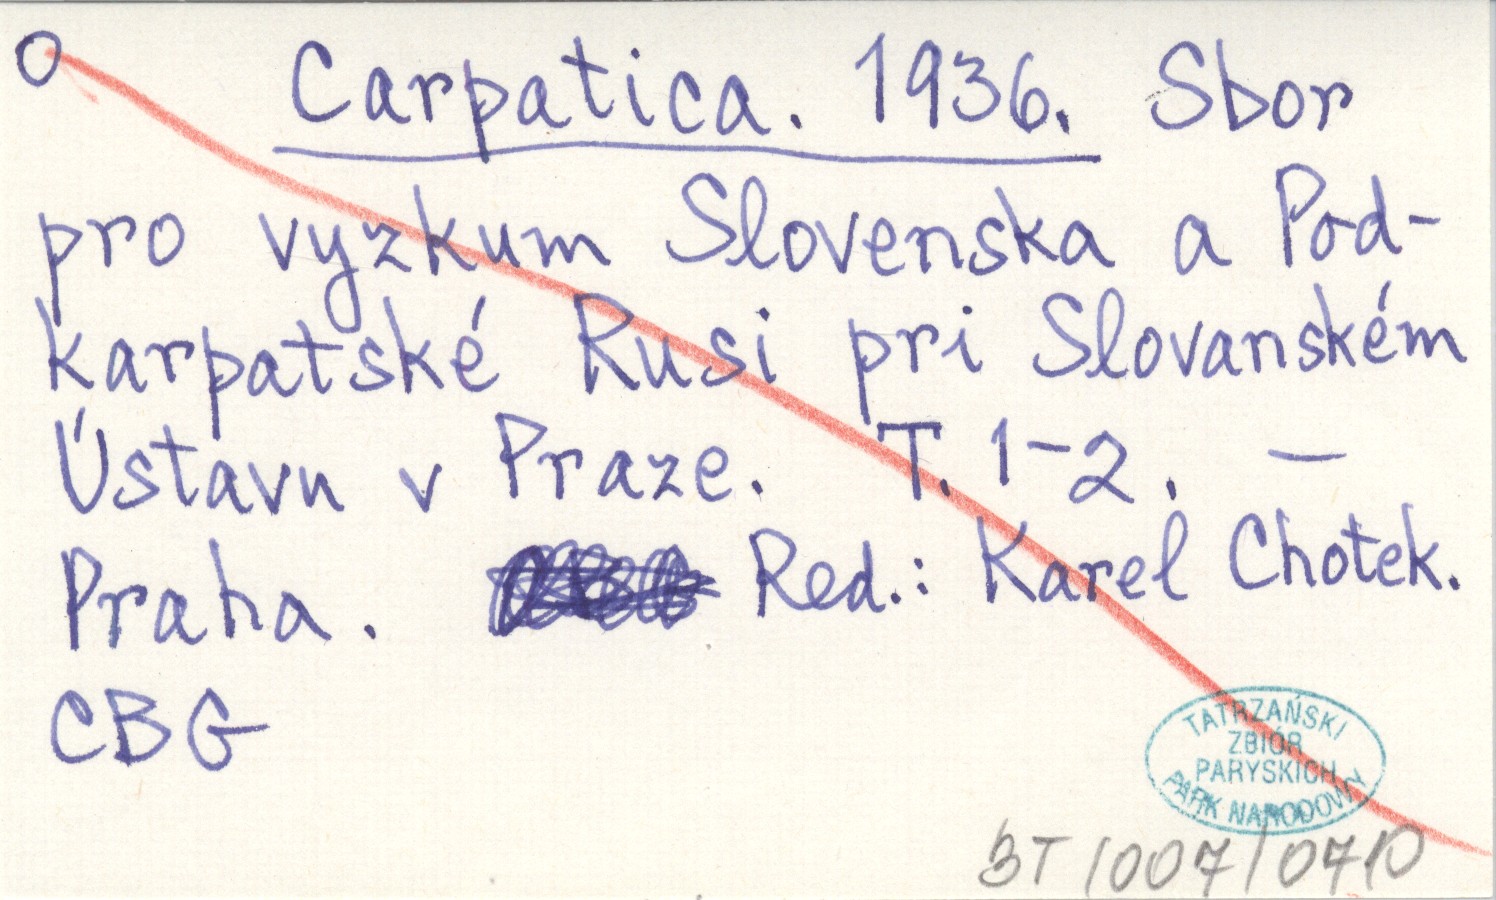 O Carpatica. 1936. Sbor
pro vyzkum Slovenska a Pod-
karpatské Rusi pri Slovanském
Ústavu v Praze. T. 1-2. —
Praha. Red.: Karel Chotek.
CBG
TATRZAŃSKI
ZBIÓR
PARYSKICH
PARK NARODOWY
BT/007/0710